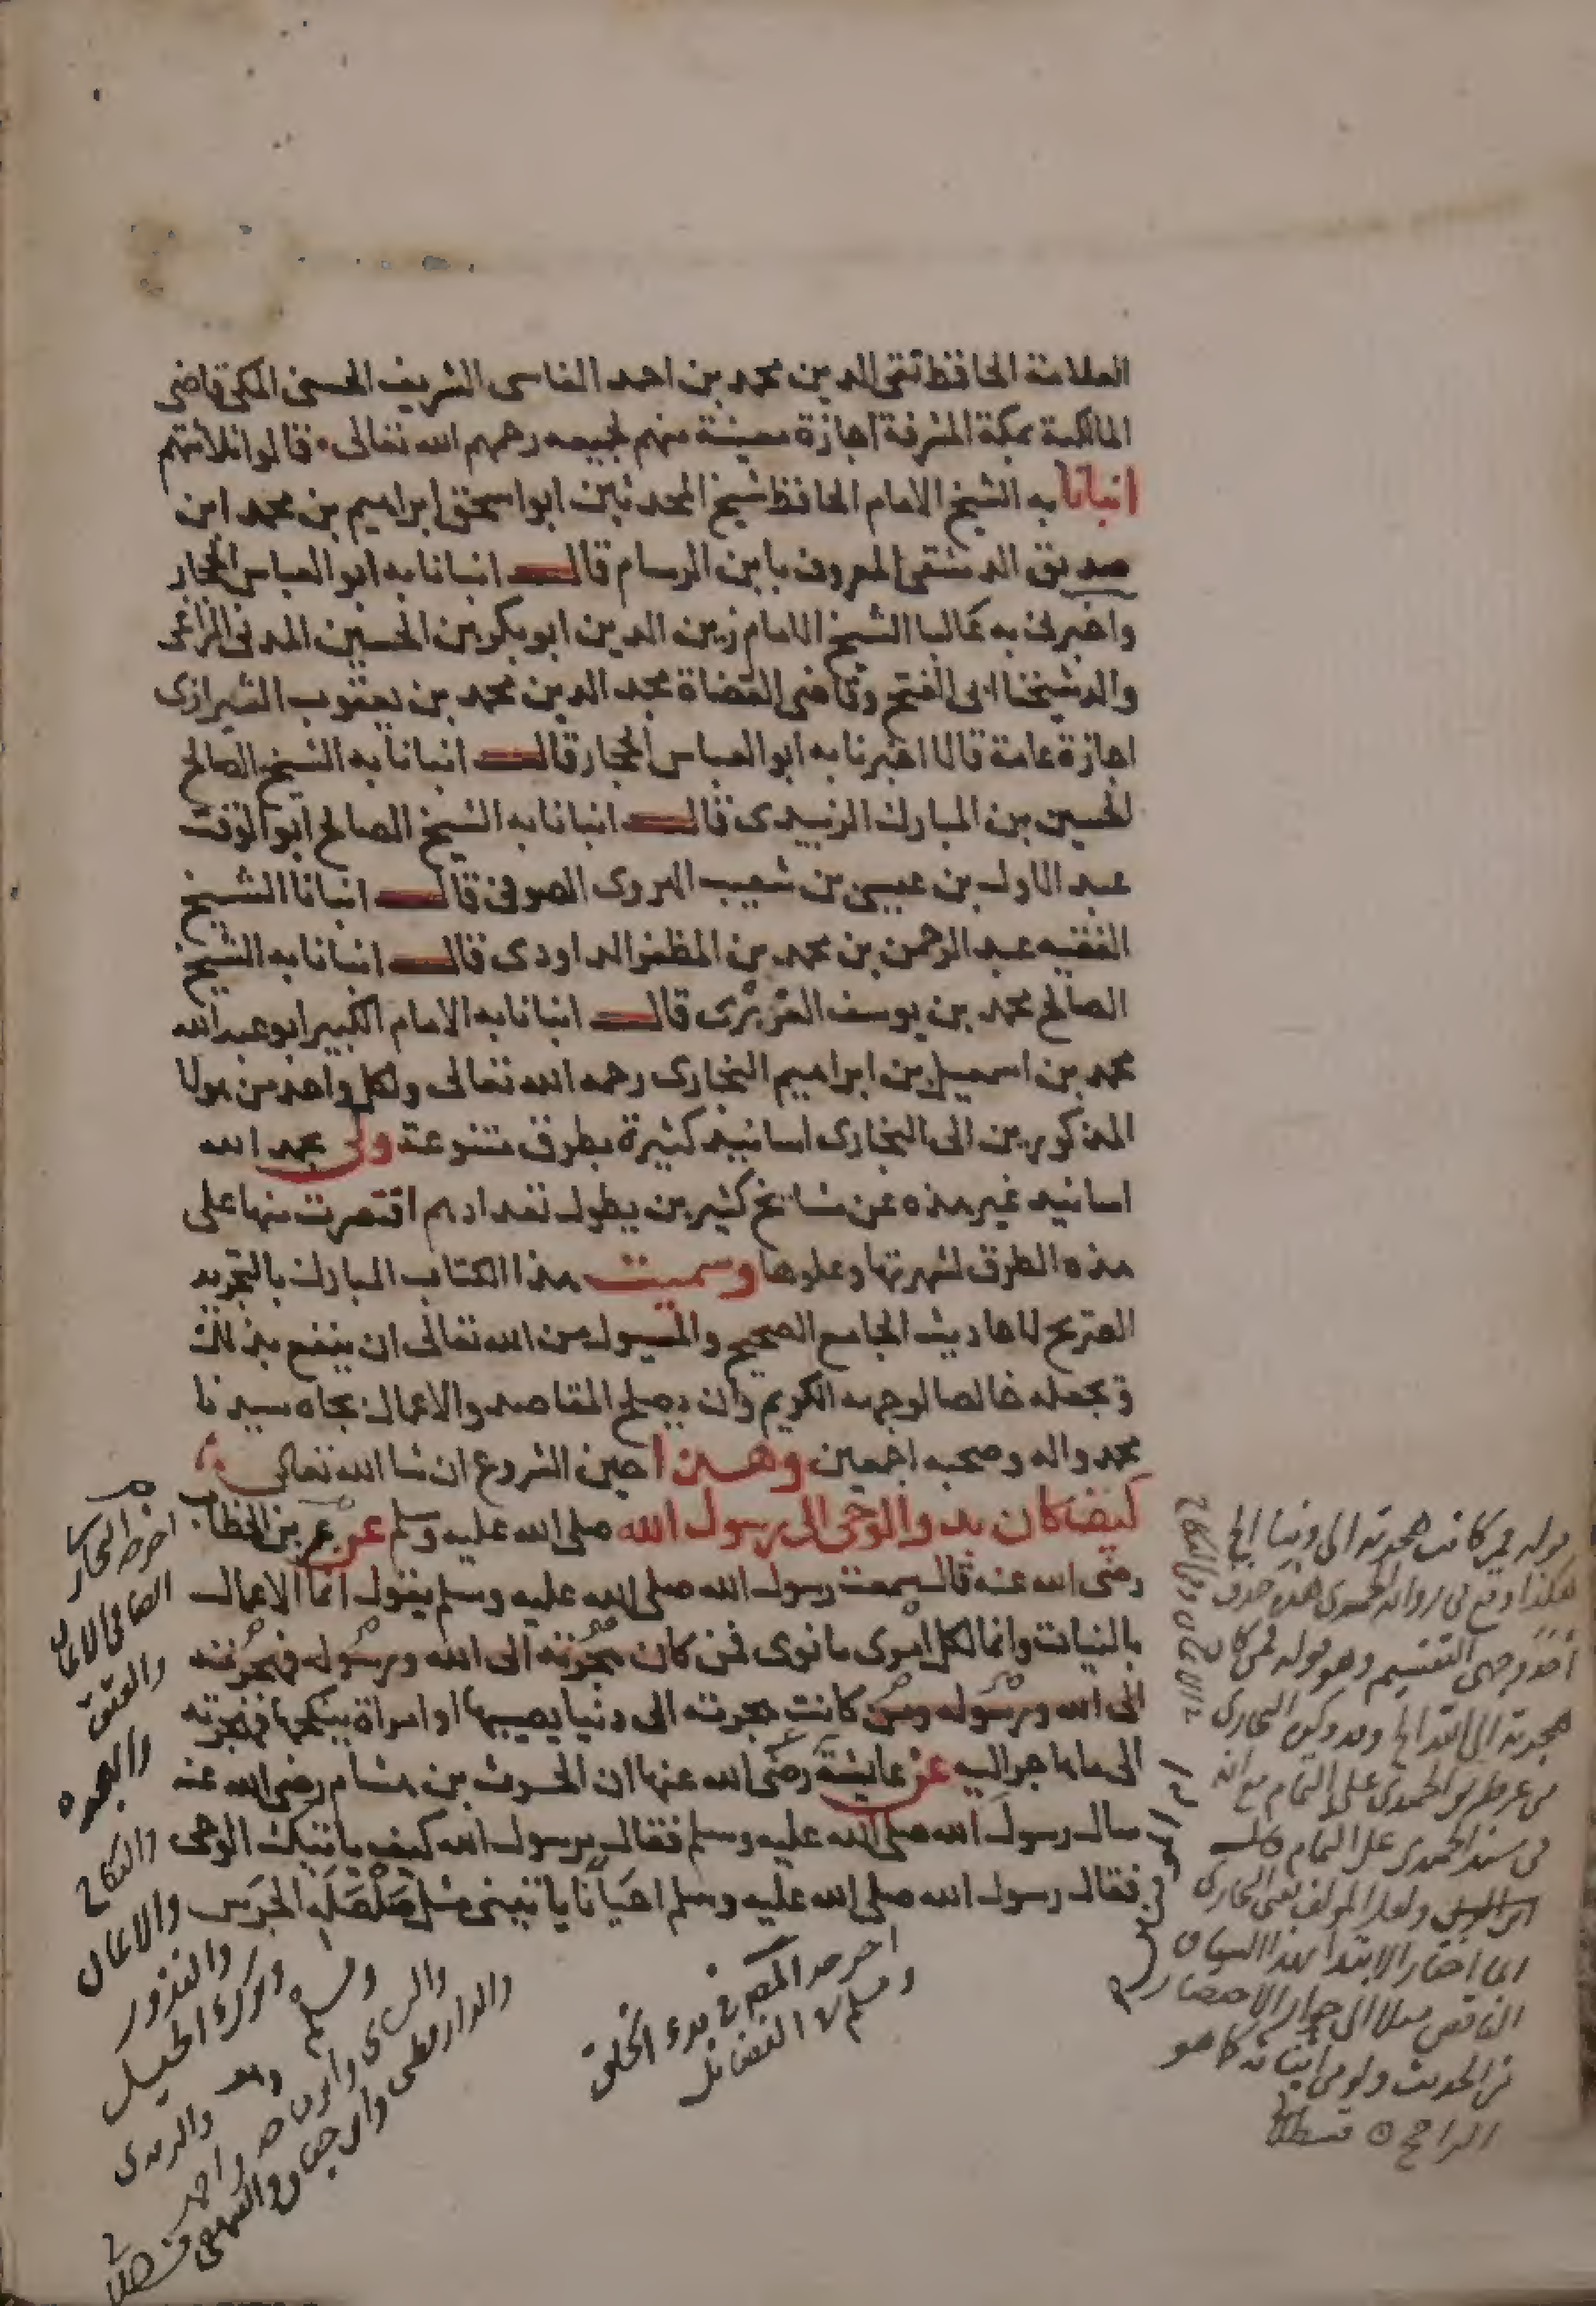 العلامة الحافظ تقى الدين محمد بن احمد الفاسى الشريف الحسنى المكى قاضى
المالكية بمكة المشرفة اجازة معينة منهم لجميعه رحمهم الله تعالى قالوا ثلاثتهم
انبانا به الشيخ الامام الحافظ شيخ المحدثين ابواسحق ابراهيم بن محمد ابن
صديق الدمشقى المعروف بابن الرسام قال انبانا به ابوالعباس الحجار
واخبرنى به عاليا الشيخ الامام زين الدين ابوبكر بن الحسين المدنى المراغى
والد شيخنا ابى الفتح وقاضى القضاة مجد الدين محمد بن يعقوب الشيرازى
اجازة عامة قالا اخبرنا به ابوالعباس الحجار قال انبانا به الشيخ الصالح
الحسين بن المبارك الزبيدى قال انبانا به الشيخ الصالح ابوالوقت
عبد الاول بن عيسى بن شعيب الهروى الصوفى قال انبانا الشيخ
الفقيه عبد الرحمن بن محمد بن المظفر الداودى قال انبانا به الشيخ
الصالح محمد بن يوسف الفربرى قال انبانا به الامام الكبير ابو عبد الله
محمد بن اسمعيل بن ابراهيم البخارى رحمه الله تعالى ولكل واحد من هولا
المذكورين الى البخارى اسانيد كثيرة بطرق متنوعة ولى بحمد الله
اسانيد غير هذه عن مشايخ كثيرين يطول تعدادهم اقتصرت منها على
هذه الطرق لشهرتها وعلوها وسميت هذا الكتاب المبارك بالتجريد
الصريح لاحاديث الجامع الصحيح والمسول من الله تعالى ان ينفع بذلك
ويجعله خالصا لوجهه الكريم وان يصلح المقاصد والاعمال بجاه سيدنا
محمد واله وصحبه اجمعين وهذا حين الشروع ان شا الله تعالى
كيف كان بدو الوحى الى رسول الله صلى الله عليه وسلم عن عمر بن الخطاب
رضى الله عنه قال سمعت رسول الله صلى الله عليه وسلم يقول انما الاعمال
بالنيات وانما لكل امرى ما نوى فمن كان هجرته الى الله ورسوله فهجرته
الى الله ورسوله ومن كانت هجرته الى دنيا يصيبها او امراة ينكحها فهجرته
الى ما هاجر اليه عن عايشة رضى الله عنها ان الحرث بن هشام رضى الله عنه
سال رسول الله صلى الله عليه وسلم فقال يرسول الله كيف ياتيك الوحى
فقال رسول الله صلى الله عليه وسلم احيانا ياتينى مثل صلصلة الجرس
قوله فمن كانت هجرته الى دنيا الخ
هكذا وقع فى رواية الحميدى هذه حذف
احد وجهى التقسيم وهو قوله فمن كان
هجرته الى الله الخ وقد ذكره البخارى
من غير طريق الحميدى على التمام مع انه
فى مسند الحميدى على التمام قال
ولعل المولف يعنى البخارى
انما اختار الابتدا بهذا السياق
الناقص ميلا الى جواز الاختصار
من الحديث ولو من اثنائه كما هو
الراجح
اخرجه المص فى بدء الخلق
ومسلم فى الفضائل
والعتق
والهجرة
والنكاح
والايمان
والنذور
وترك الحيل
ومسلم
والترمذى
والدارقطنى وابن حبان والبيهقى